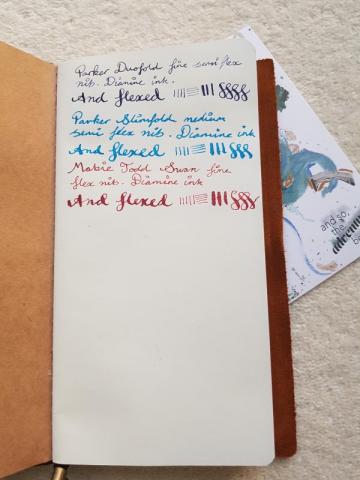 Parker Duofold fine semi flex
nib. Diamine ink.
And flexed
Parker Slimfold medium
semi flex nib. Diamine ink
And flexed
Mabie Todd Swan fine
flex nib. Diamine ink
And flexed
and so,
the
adventure
be